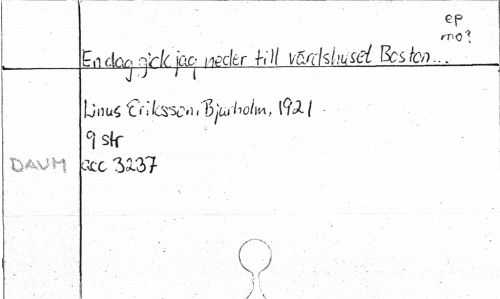 ep
mo?
En dag gick jag neder till värdshuset Boston...
Linus Eriksson, Bjurholm, 1921
9 str
DAUM acc 3237